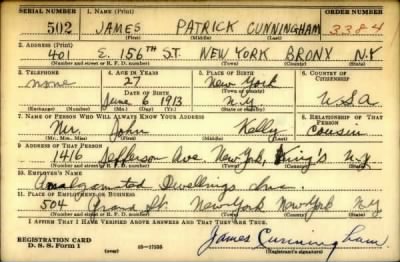 SERIAL NUMBER 1. NAME (Print) ORDER NUMBER
502 JAMES PATRICK CUNNINGHAM 3384
(First) (Middle) (Last)
2. ADDRESS (Print)
401 E. 156TH ST. NEW YORK BRONX N.Y
(Number and street or R. F. D. number) (Town) (County) (State)
3. TELEPHONE 4. AGE IN YEARS 5. PLACE OF BIRTH 6. COUNTRY OF CITIZENSHIP
none 27 New York
DATE OF BIRTH (Town or county)
June 6 1913 N.Y U.S.A
(Exchange) (Number) (Mo.) (Day) (Yr.) (State or country)
7. NAME OF PERSON WHO WILL ALWAYS KNOW YOUR ADDRESS 8. RELATIONSHIP OF THAT PERSON
Mr. John Kelly Cousin
(Mr., Mrs., Miss) (First) (Middle) (Last)
9. ADDRESS OF THAT PERSON
1416 Jefferson Ave New York, King's N.Y
(Number and street or R. F. D. number) (Town) (County) (State)
10. EMPLOYER'S NAME
Amalgamated Dwellings Inc.
11. PLACE OF EMPLOYMENT OR BUSINESS
504 Grand St. New York New York N.Y
(Number and street or R. F. D. number) (Town) (County) (State)
I AFFIRM THAT I HAVE VERIFIED ABOVE ANSWERS AND THAT THEY ARE TRUE.
REGISTRATION CARD
D. S. S. Form 1 16-17105 James Cunningham
(Registrant's signature)